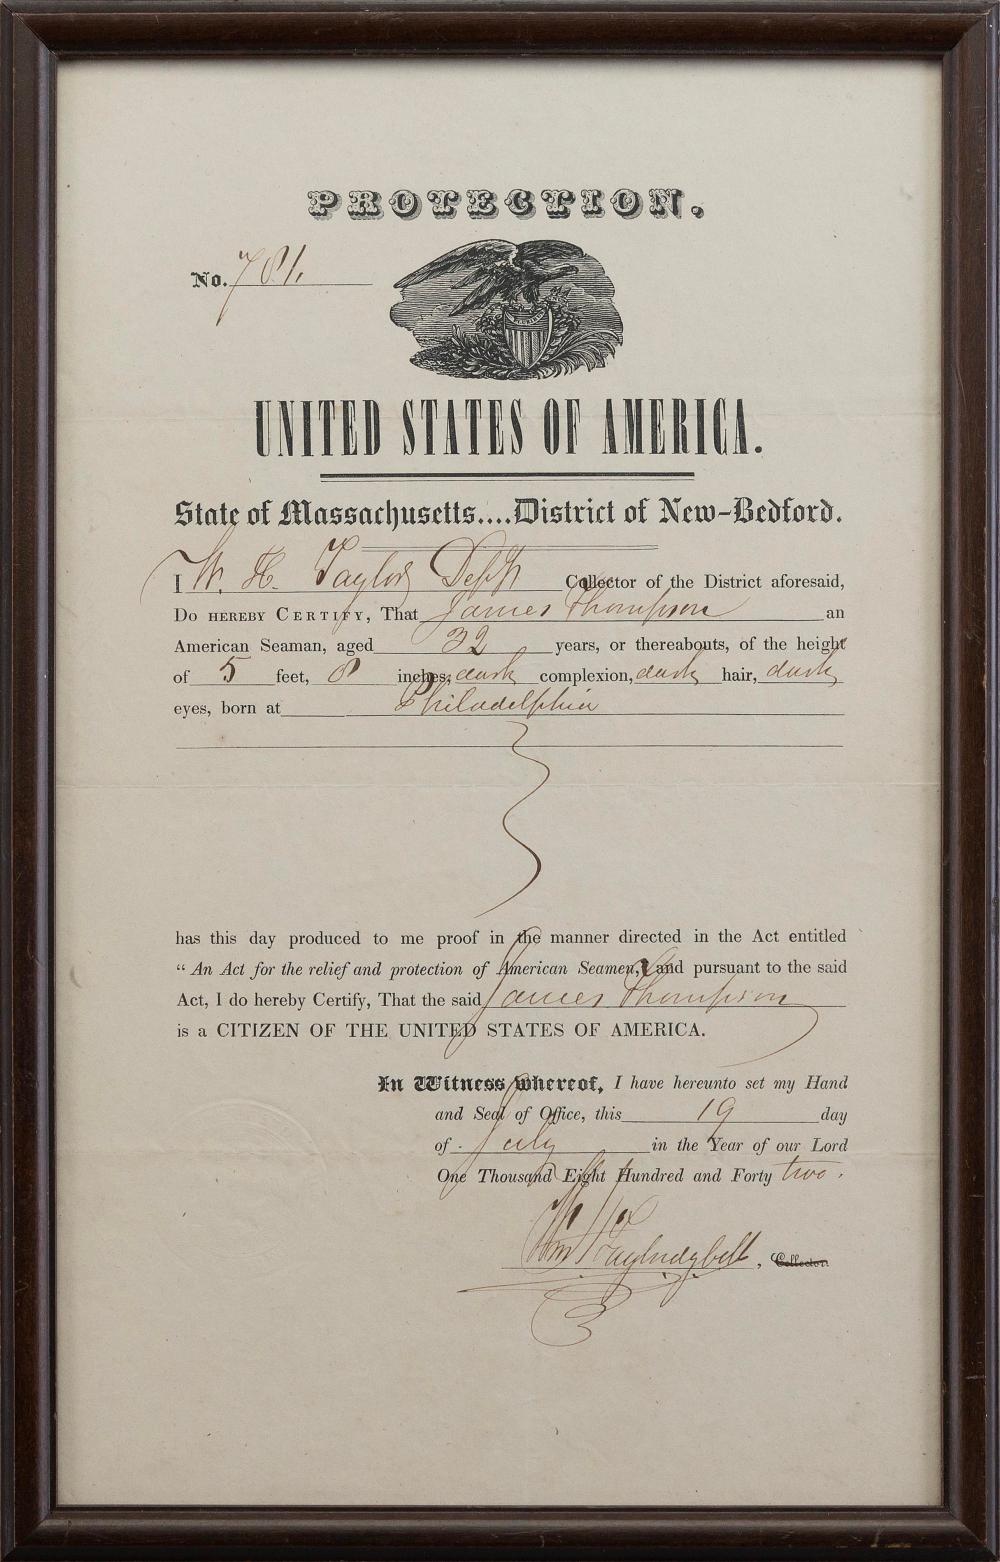 PROTECTION.
No. 781.
UNITED STATES OF AMERICA.
State of Massachusetts....District of New-Bedford.
I W. H. Taylor Depy Collector of the District aforesaid,
DO HEREBY CERTIFY, That James Thompson an
American Seaman, aged 32 years, or thereabouts, of the height
of 5 feet, 8 inches, dark complexion, dark hair, dark
eyes, born at Philadelphia
has this day produced to me proof in the manner directed in the Act entitled
“ An Act for the relief and protection of American Seamen," and pursuant to the said
Act, I do hereby Certify, That the said James Thompson
is a CITIZEN OF THE UNITED STATES OF AMERICA.
In Witness whereof, I have hereunto set my Hand
and Seal of Office, this 19 day
of July in the Year of our Lord
One Thousand Eight Hundred and Forty two.
Collector.